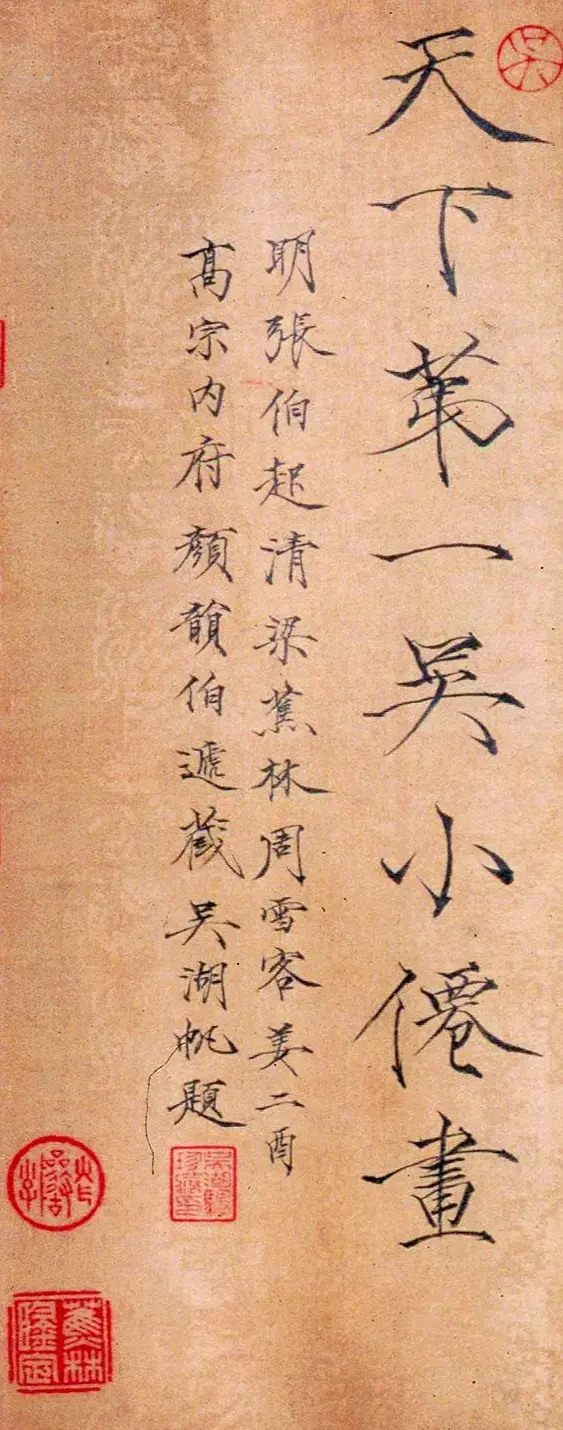 天下苐一吳小僊畫
明張伯起清梁蕉林周雪客姜二酉
高宗内府顏韻伯遞藏吳湖帆題
吳
蕉林